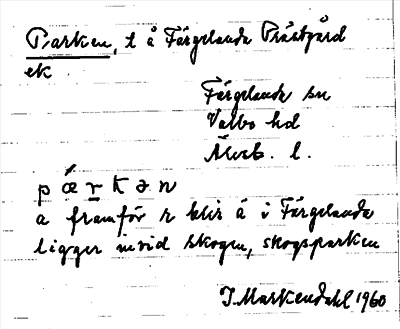 Parken, t å Färgelanda Prästgård
ek
Färgelanda sn
Valbo hd
Älvsb. l.
p ǽ r k ə n
a framför r blir ä i Färgelanda
ligger invid skogen, skogsparken
J Markendahl 1960